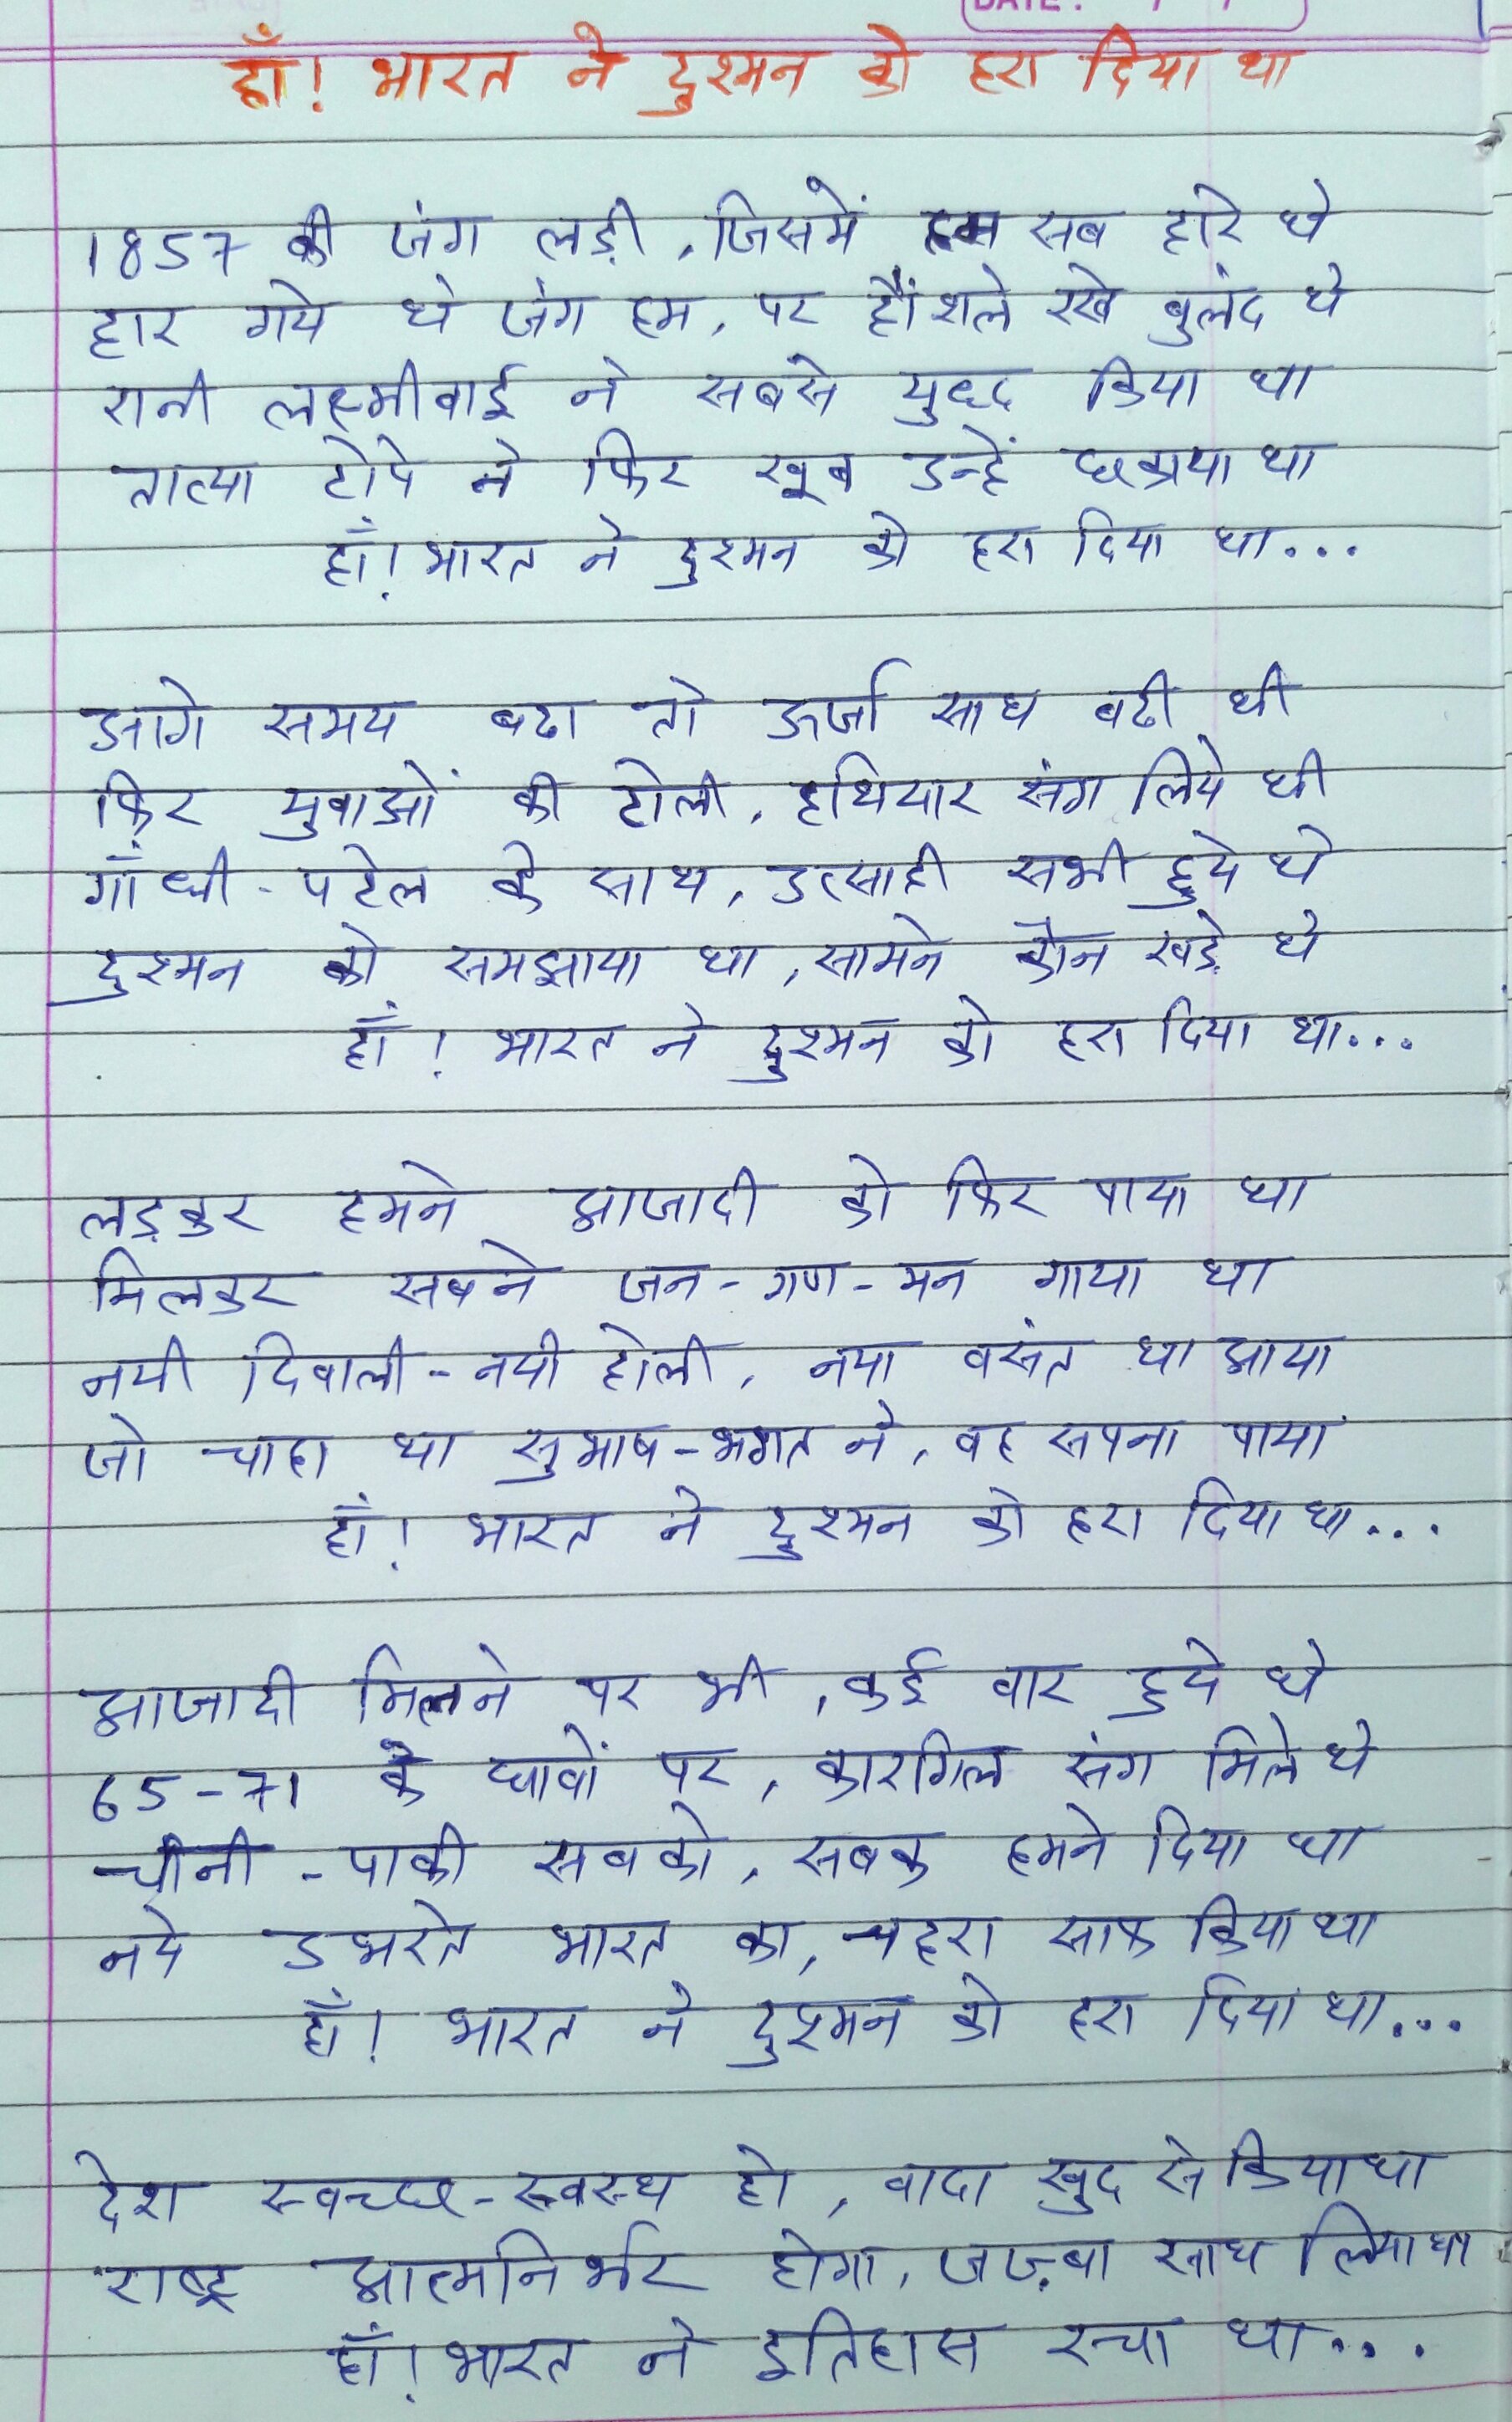 DATE :
हाँ! भारत ने दुश्मन को हरा दिया था
1857 की जंग लड़ी, जिसमें हम सब हारे थे
हार गये थे जंग हम, पर हौंशले रखे बुलंद थे
रानी लक्ष्मीबाई ने सबसे युध्द किया था
तात्या टोपे ने फिर खूब उन्हें छकाया था
हाँ! भारत ने दुश्मन को हरा दिया था...
आगे समय बढा तो ऊर्जा साथ बढी थी
फिर युवाओं की टोली, हथियार संग लिये थी
गाँधी-पटेल के साथ, उत्साही सभी हुये थे
दुश्मन को समझाया था, सामने कौन खड़े थे
हाँ! भारत ने दुश्मन को हरा दिया था...
लड़कर हमने आजादी को फिर पाया था
मिलकर सबने जन-गण-मन गाया था
नयी दिवाली-नयी होली, नया बसंत था आया
जो चाहा था सुभाष-भगत ने, वह सपना पाया
हाँ! भारत ने दुश्मन को हरा दिया था...
आजादी मिलने पर भी, कई वार हुये थे
65-71 के घावों पर, कारगिल संग मिले थे
चीनी-पाकी सबको, सबक हमने दिया था
नये उभरते भारत का, चहरा साफ किया था
हाँ! भारत ने दुश्मन को हरा दिया था...
देश स्वच्छ-स्वस्थ हो, वादा खुद से किया था
राष्ट्र आत्मनिर्भर होगा, जज़्बा साथ लिया था
हाँ! भारत ने इतिहास रचा था...